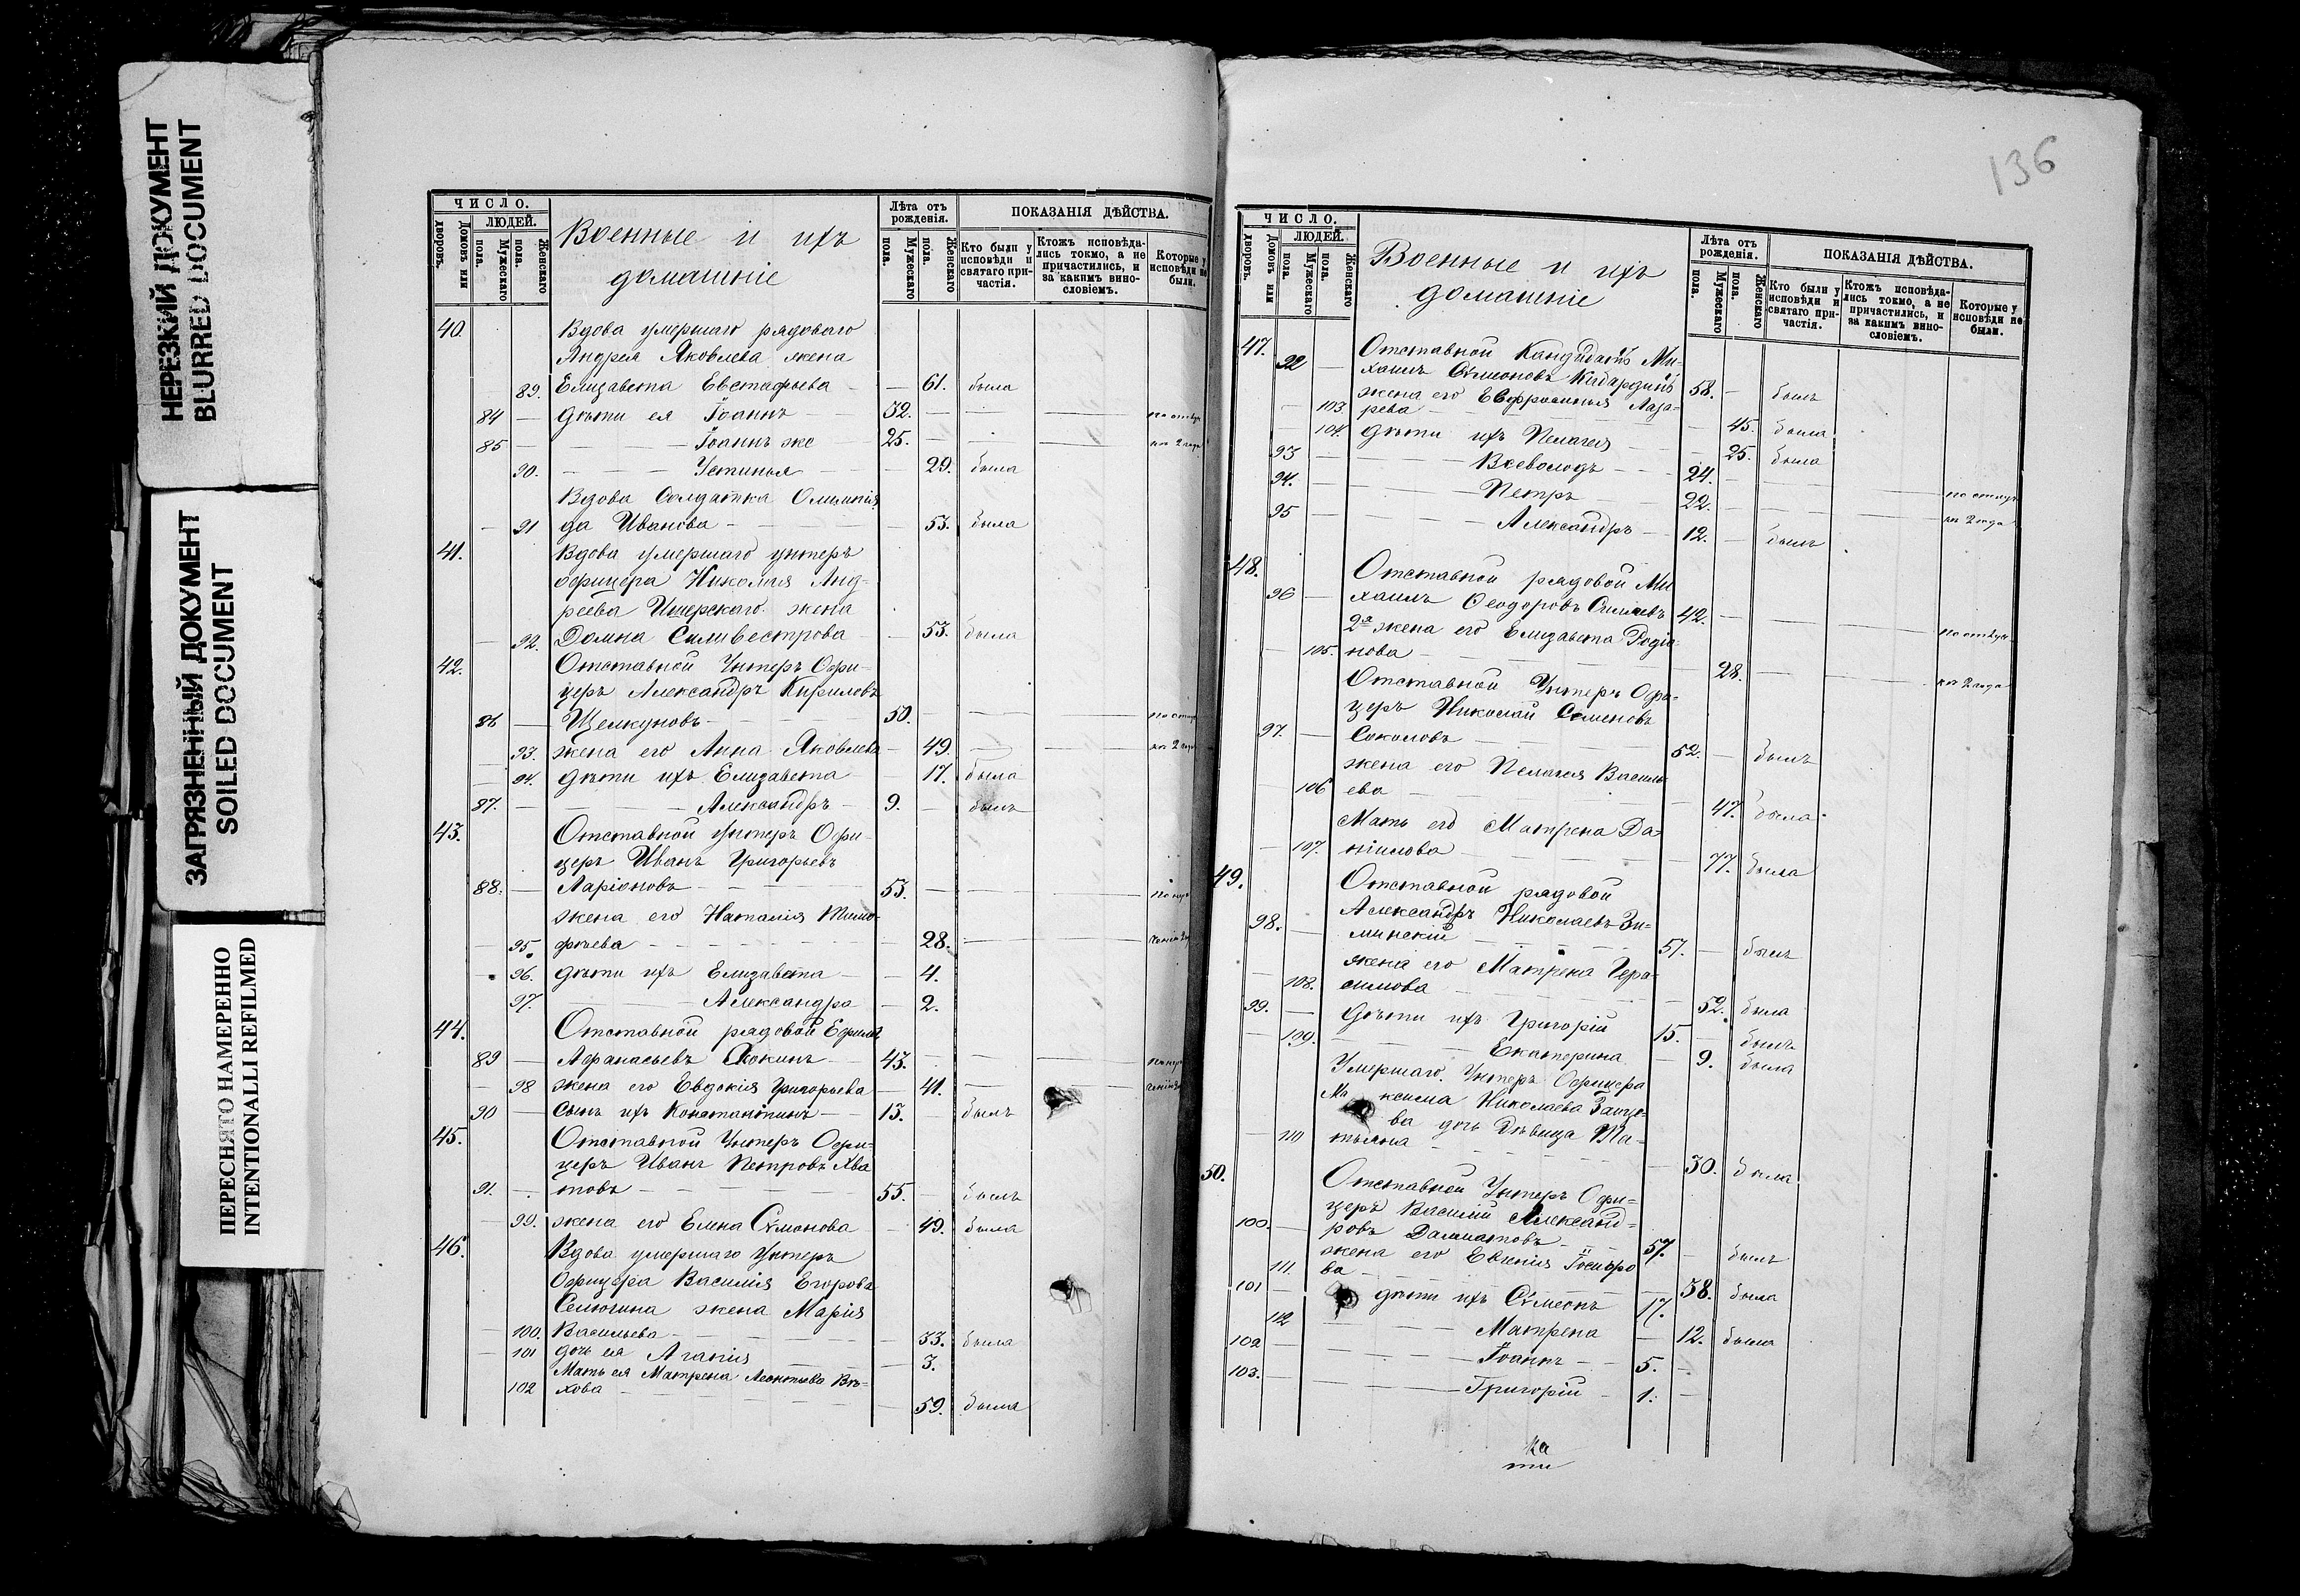 НЕРЕЗКИЙ ДОКУМЕНТ
BLURRED DOCUMENT
ЗАГРЯЗНЕННЫЙ ДОКУМЕНТ
SOILED DOCUMENT
ПЕРЕСНЯТО НАМЕРЕННО
INTENTIONALLI REFILMED
ЧИСЛО.
ЛЮДЕЙ.
Домовъ или дворовъ.
Мужескаго пола.
Женскаго пола.
Военные и ихъ
домашніе
Лѣта отъ рожденія.
Мужескаго пола.
Женскаго пола.
ПОКАЗАНІЯ ДѢЙСТВА.
Кто были у исповѣди и святаго при-частія.
Ктожъ исповѣда-лись токмо, а не причастились, и за какимъ вино-словіемъ.
Которые у исповѣди не были.
40. Вдова умершаго рядоваго
Андрея Яковлева жена
89. Елизавета Евстафьева — — 61. была
84 — дѣти ея Іоаннъ 32. — — — по отлуч
85 — — — Іоаннъ же 25. — — — къ 2 года
90. — — — Устинья — — 29. была
Вдова Солдатка Олимпія
— 91 да Иванова — — — 53. была
41. Вдова умершаго унтеръ
офицера Николая Анд-
реева Имерскаго жена
— 92. Домна Силивестрова — — 53. была
42. Отставной Унтеръ Офи-
церъ Александръ Кириловъ
86 — Щелкуновъ — — 50. — — —
— 93. жена его Анна Яковлева — 49. — —
— 94. дѣти ихъ Елизавета — — 17. была
87. — — — Александръ — 9. — былъ
43. Отставной Унтеръ Офи-
церъ Иванъ Григорьевъ
88. — Ларіоновъ — — — 53. — — —
жена его Наталія Тимо-
95. фѣева — — — — 28. — —
— 96. дѣти ихъ Елизавета — — 4.
97. — — Александра — 2.
44. Отставной рядовой Ефимъ
89 — Афанасьевъ — 43. — — —
— 98 жена его Евдокія Григорьева — 41. — —
90 — сынъ ихъ Константинъ — 13. — былъ
45. Отставной Унтеръ Офи-
церъ Иванъ Петровъ Хва
91. — товъ — — — — 55. — былъ
— 99. жена его Елена Сѵмонова — 49. была
46. Вдова умершаго Унтеръ
Офицера Василія Егорова
Селюгина жена Марія
— 100. Васильева — — — — 33. была
— 101 дочь ея Агапія — — 3.
Мать ея Матрена Леонтьева
102 хова — — — — 59. была
136
ЧИСЛО.
ЛЮДЕЙ.
Домовъ или дворовъ.
Мужескаго пола.
Женскаго пола.
Военные и ихъ
домашніе
Лѣта отъ рожденія.
Мужескаго пола.
Женскаго пола.
ПОКАЗАНІЯ ДѢЙСТВА.
Кто были у исповѣди и святаго при-частія.
Ктожъ исповѣда-лись токмо, а не причастились, и за какимъ вино-словіемъ.
Которые у исповѣди не были.
47. Отставной Кандидатъ Ми-
92 — хаилъ Сѵмеоновъ Кабардинъ 58. — былъ
жена его Евфросинья Лаза-
— 103. рева — — — 45. была
— 104. дѣти ихъ Пелагея — 25. была
93 — — — Всеволодъ — — 24. — — — по отлуч
94. — — — Петръ — 22. — — — къ 2 года
95 — — — Александръ — 12. — былъ
48. Отставной рядовой Ми
96 — хаилъ Ѳеодоровъ 42. — — —
2я жена его Елизавета Родіо
— 105. нова — — — 28. — — къ 2 года
Отставной Унтеръ Офи-
церъ Николай Семеновъ
97. — Соколовъ — — 52. — былъ
жена его Пелагея Василь
— 106 ева — — — — 47. была
Мать его Матрена Да-
— 107. ніилова — — — — 77. была
49. Отставной рядовой
Александръ Николаевъ Зи-
98. — минскій — — 57. — былъ
жена его Матрена Гера-
— 108. симова — — — — 52. была
99. — дѣти ихъ Григорій 15. — былъ
— 109. — — — Екатерина — 9. была
Умершаго Унтеръ Офицера
Максима Николаева
ва дочь дѣвица Та-
— 110 тьяна — — — — 30. была
50. Отставной Унтеръ Офи-
церъ Василій Александ-
100. — ровъ Далматовъ — — 57. — былъ
жена его Евгенія Іосифо
— 111. ва — — — 58. была
101 — дѣти ихъ Сѵмеонъ 17.
112 — — — Матрена — 12. была
102 — — — Іоаннъ — 5. —
103. — — — Григорій — 1. —
Ка
ти